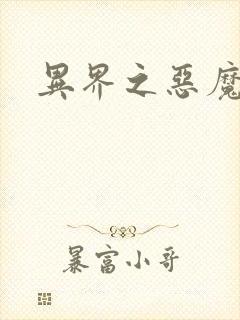 異界之惡魔
暴富小哥